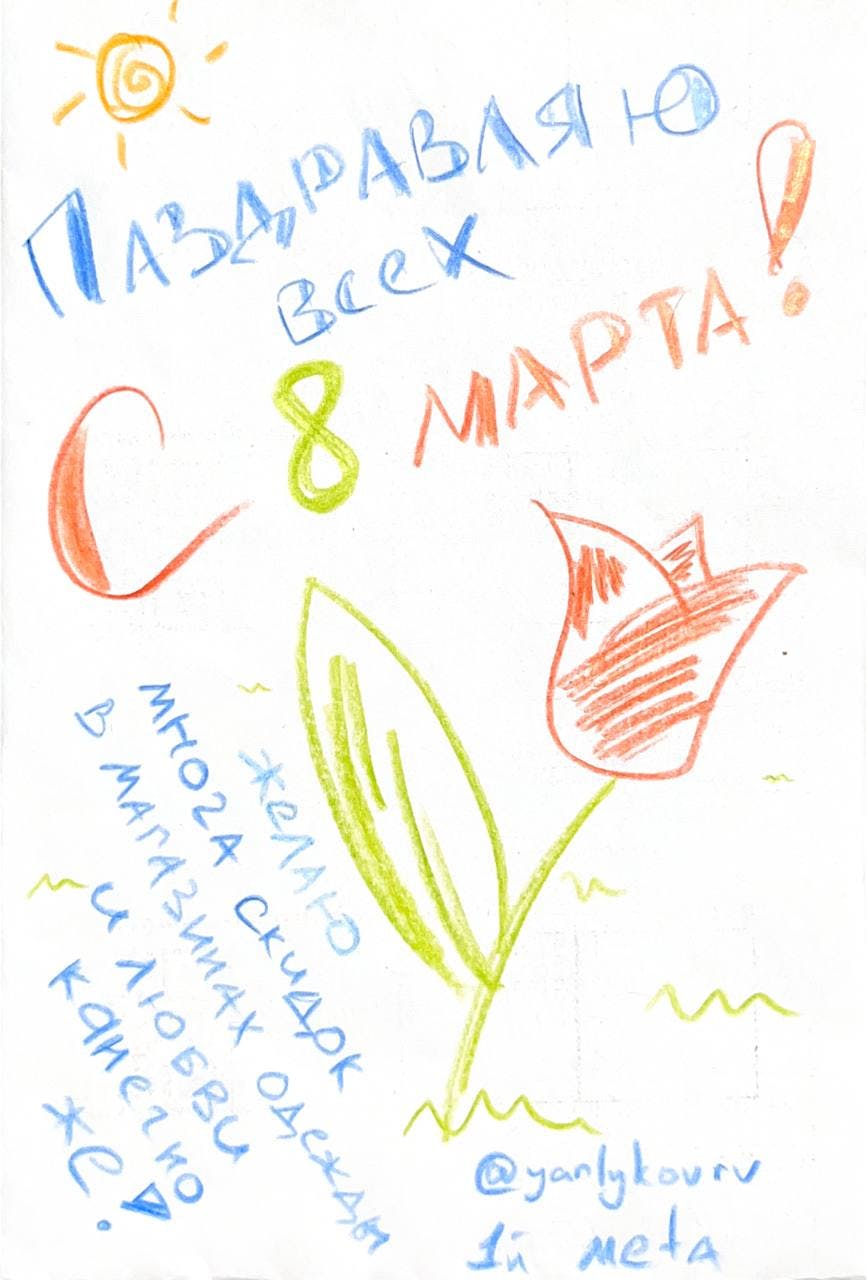 ПАЗДРАВЛЯЮ
ВСЕХ
С 8 МАРТА!
ЖЕЛАЮ
МНОГА СКИДОК
В МАГАЗИНАХ ОДЕЖДЫ
И ЛЮБВИ
КАНЕЧНО
ЖЕ!
@yarlykovrv
1й мета